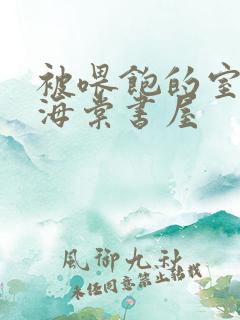 被喂饱的室
海棠书屋
風御九秋
未经同意禁止转载